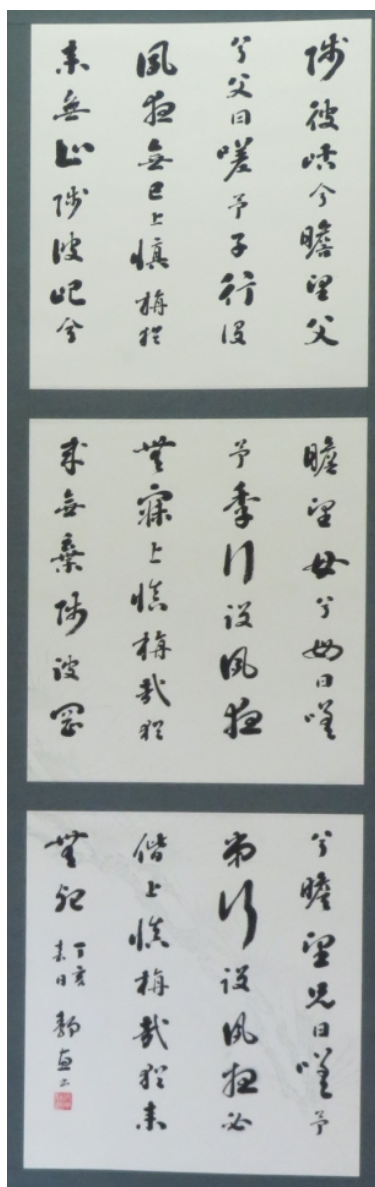 陟彼岵兮瞻望父
兮父曰嗟予子行役
夙夜無已上慎旃猶
来無止陟彼屺兮
瞻望母兮母曰嗟
予季行役夙夜
無寐上慎旃哉猶
来無棄陟彼岡
兮瞻望兄曰嗟予
弟行役夙夜必
偕上慎旃哉猶来
無死
丁亥